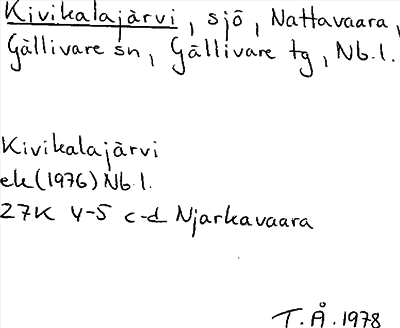 Kivikalajärvi, sjö, Nattavaara,
Gällivare sn, Gällivare tg, Nb.l.
Kivikalajärvi
ek(1976) Nb.l.
27K 4-5 c-d Njarkavaara
T.Å.1978